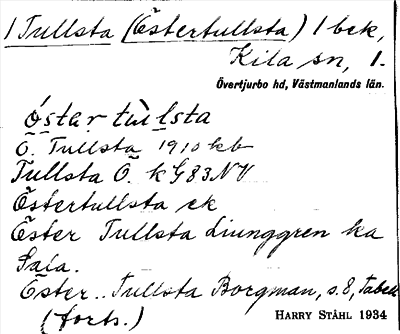 1 Tullsta (Östertullsta) 1 bck,
Kila sn, 1.
Övertjurbo hd, Västmanlands län.
östar tùlsta
Ö. Tullsta 1910 kb
Tullsta Ö. k G83NV
Östertullsta ek
Öster Tullsta Liunggren ka
Sala.
Öster.. Tullsta Borgman, s. 8, Tabell
(forts.)
HARRY STÅHL 1934